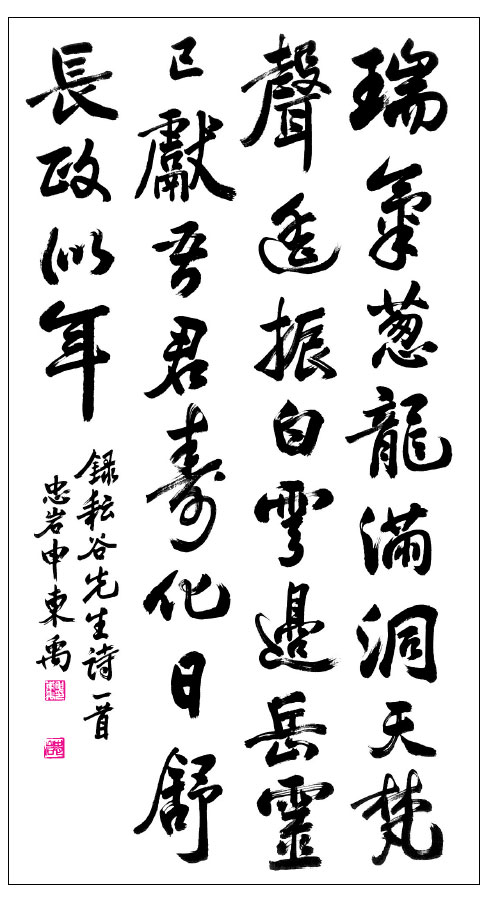 瑞氣葱龍滿洞天梵
聲遙振白雲邊岳靈
已獻吾君壽化日舒
長政似年
錄耘谷先生詩一首
忠岩申東禹